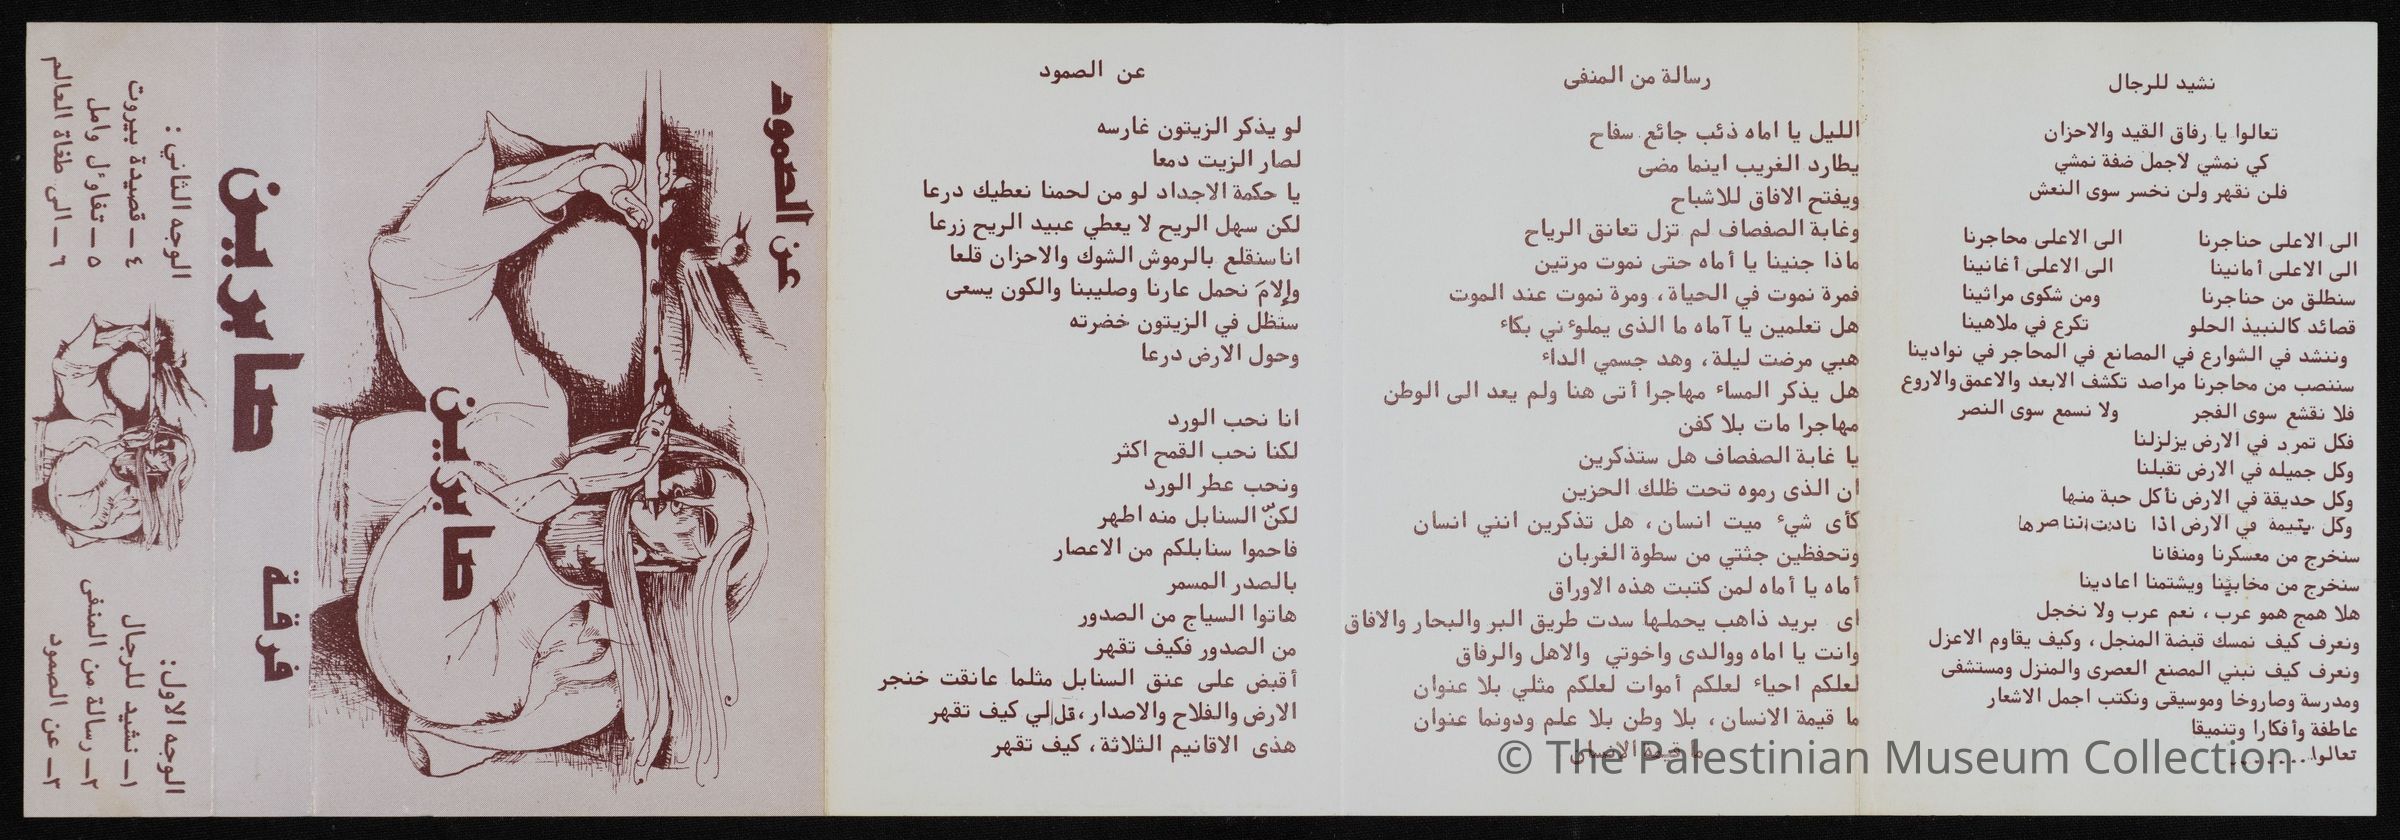 نشيد للرجال
تعالوا يا رفاق القيد والاحزان
كي نمشي لاجمل ضفة نمشي
فلن نقهر ولن نخسر سوى النعش
الى الاعلى حناجرنا الى الاعلى محاجرنا
الى الاعلى أمانينا الى الاعلى أغانينا
سنطلق من حناجرنا ومن شكوى مراثينا
قصائد كالنبيذ الحلو تكرع في ملاهينا
وننشد في الشوارع في المصانع في المحاجر في نوادينا
سننصب من محاجرنا مراصد تكشف الابعد والاعمق والاروع
فلا نقشع سوى الفجر ولا نسمع سوى النصر
فكل تمرد في الارض يزلزلنا
وكل جميله في الارض تقبلنا
وكل حديقة في الارض نأكل حبة منها
وكل يتيمة في الارض اذا نادت نناصرها
سنخرج من معسكرنا ومنفانا
سنخرج من مخابئنا ويشتمنا اعادينا
هلا همج همو عرب ، نعم عرب ولا نخجل
ونعرف كيف نمسك قبضة المنجل ، وكيف يقاوم الاعزل
ونعرف كيف نبني المصنع العصرى والمنزل ومستشفى
ومدرسة وصاروخا وموسيقى ونكتب اجمل الاشعار
عاطفة وأفكارا وتنميقا
تعالوا.......
رسالة من المنفى
الليل يا اماه ذئب جائع سفاح
يطارد الغريب اينما مضى
ويفتح الافاق للاشباح
وغابة الصفصاف لم تزل تعانق الرياح
ماذا جنينا يا أماه حتى نموت مرتين
فمرة نموت في الحياة ، ومرة نموت عند الموت
هل تعلمين يا آماه ما الذى يملوٴني بكاء
هبي مرضت ليلة ، وهد جسمي الداء
هل يذكر المساء مهاجرا أتى هنا ولم يعد الى الوطن
مهاجرا مات بلا كفن
يا غابة الصفصاف هل ستذكرين
ان الذى رموه تحت ظلك الحزين
كأى شيء ميت انسان ، هل تذكرين انني انسان
وتحفظين جثتي من سطوة الغربان
أماه يا أماه لمن كتبت هذه الاوراق
اى بريد ذاهب يحملها سدت طريق البر والبحار والافاق
وانت يا اماه ووالدى واخوتي والاهل والرفاق
لعلكم احياء لعلكم أموات لعلكم مثلي بلا عنوان
ما قيمة الانسان ، بلا وطن بلا علم ودونما عنوان
ما قيمة الانسان
عن الصمود
لو يذكر الزيتون غارسه
لصار الزيت دمعا
يا حكمة الاجداد لو من لحمنا نعطيك درعا
لكن سهل الريح لا يعطي عبيد الريح زرعا
اناسنقلع بالرموش الشوك والاحزان قلعا
وإلامَ نحمل عارنا وصليبنا والكون يسعى
سنظل في الزيتون خضرته
وحول الارض درعا
انا نحب الورد
لكنا نحب القمح اكثر
ونحب عطر الورد
لكنّ السنابل منه اطهر
فاحموا سنابلكم من الاعصار
بالصدر المسمر
هاتوا السياج من الصدور
من الصدور فكيف تقهر
أقبض على عنق السنابل مثلما عانقت خنجر
الارض والفلاح والاصدار ، قل لي كيف تقهر
هذى الاقانيم الثلاثة ، كيف تقهر
عن الصمود
صابرين
فرقة صابرين
الوجه الاول:
١ـ نشيد للرجال
٢ـ رسالة من المنفى
٣ـ عن الصمود
الوجه الثاني:
٤ ـ قصيدة بيروت
٥ ـ تفاوٴل وامل
٦ ـ الى طغاة العالم
© The Palestinian Museum Collection